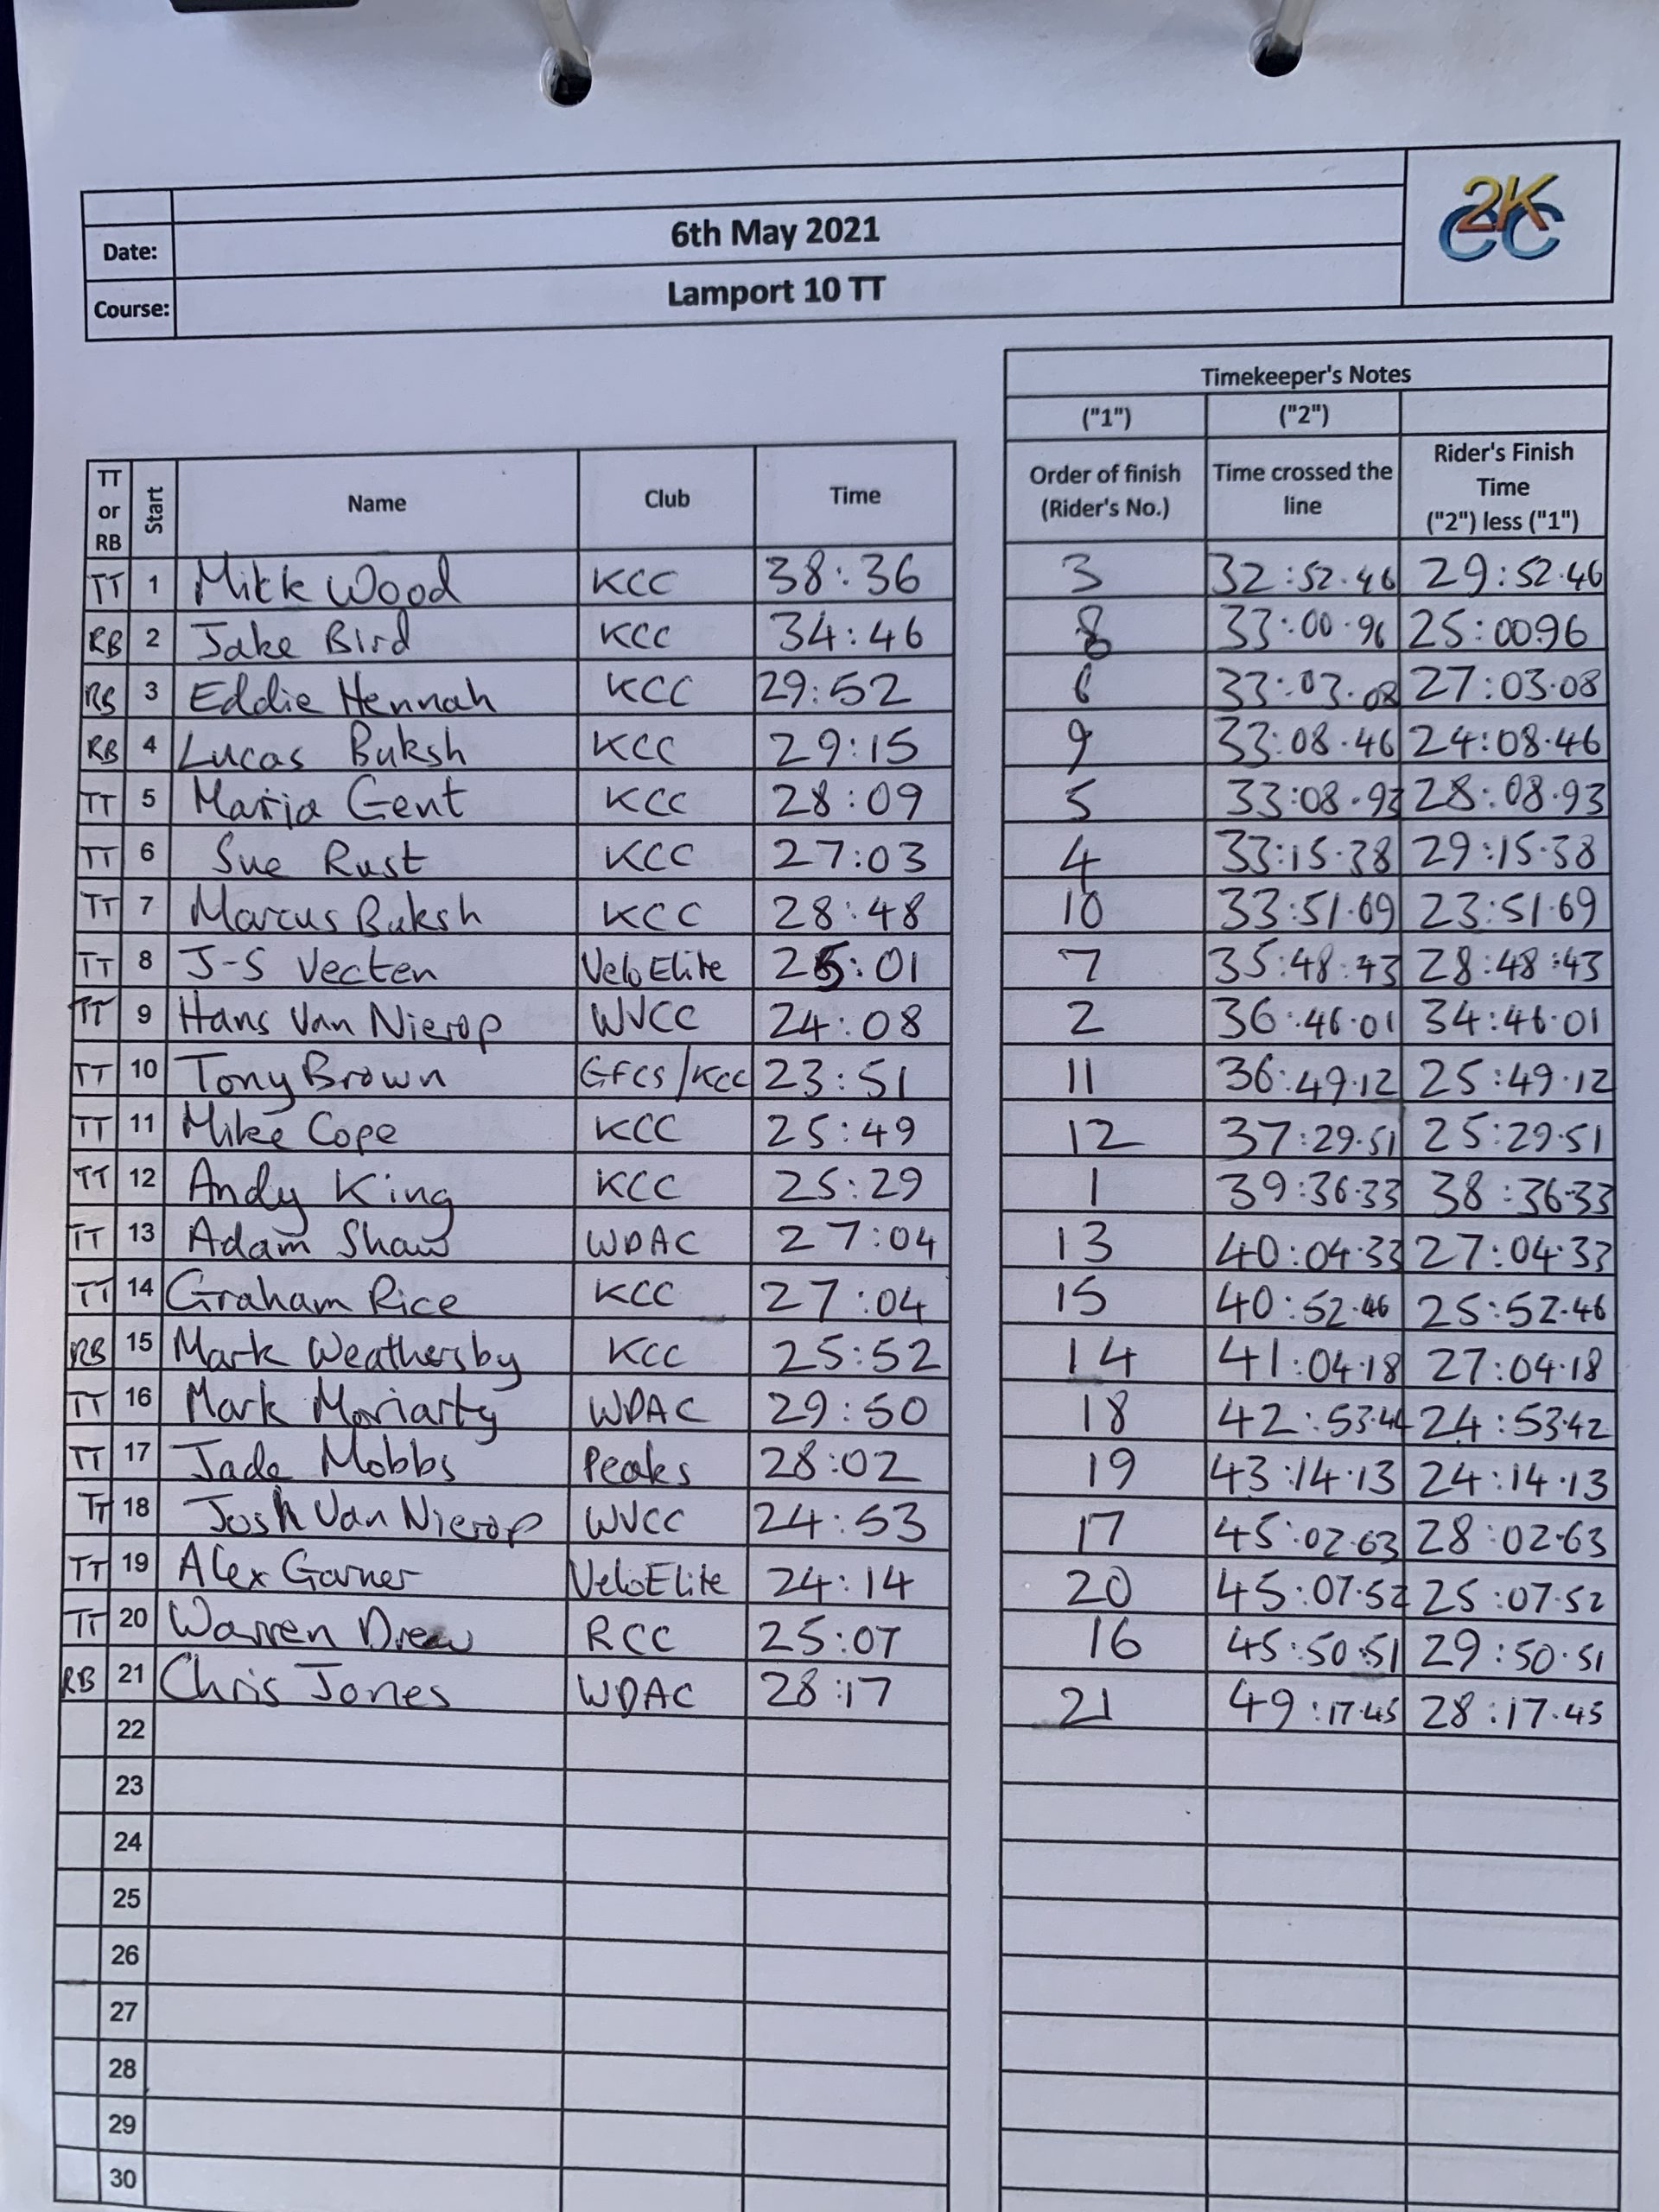 2K
CC
Date: 6th May 2021
Course: Lamport 10 TT
Timekeeper's Notes
("1") ("2")
TT or RB Start Name Club Time Order of finish (Rider's No.) Time crossed the line Rider's Finish Time ("2") less ("1")
TT 1 Mikk Wood KCC 38:36 3 32:52.46 29:52.46
RB 2 Jake Bird KCC 34:46 8 33:00.96 25:0096
RB 3 Eddie Hennah KCC 29:52 6 33:03.08 27:03.08
RB 4 Lucas Buksh KCC 29:15 9 33:08.46 24:08.46
TT 5 Maria Gent KCC 28:09 5 33:08.93 28:08.93
TT 6 Sue Rust KCC 27:03 4 33:15.38 29:15.38
TT 7 Marcus Buksh KCC 28:48 10 33:51.69 23:51.69
TT 8 J-S Vecten VeloElite 25:01 7 35:48:43 28:48:43
TT 9 Hans Van Nierop WVCC 24:08 2 36:46.01 34:46.01
TT 10 Tony Brown GFCS/KCC 23:51 11 36:49.12 25:49.12
TT 11 Mike Cope KCC 25:49 12 37:29.51 25:29.51
TT 12 Andy King KCC 25:29 1 39:36.33 38:36.33
TT 13 Adam Shaw WDAC 27:04 13 40:04.33 27:04.33
TT 14 Graham Rice KCC 27:04 15 40:52.46 25:52.46
RB 15 Mark Weathersby KCC 25:52 14 41:04.18 27:04.18
TT 16 Mark Moriarty WDAC 29:50 18 42:53.44 24:53.42
TT 17 Jade Mobbs Peaks 28:02 19 43:14.13 24:14.13
TT 18 Josh Van Nierop WVCC 24:53 17 45:02.63 28:02.63
TT 19 Alex Garner VeloElite 24:14 20 45:07.52 25:07.52
TT 20 Warren Drew RCC 25:07 16 45:50.51 29:50.51
RB 21 Chris Jones WDAC 28:17 21 49:17.45 28:17.45
22
23
24
25
26
27
28
29
30